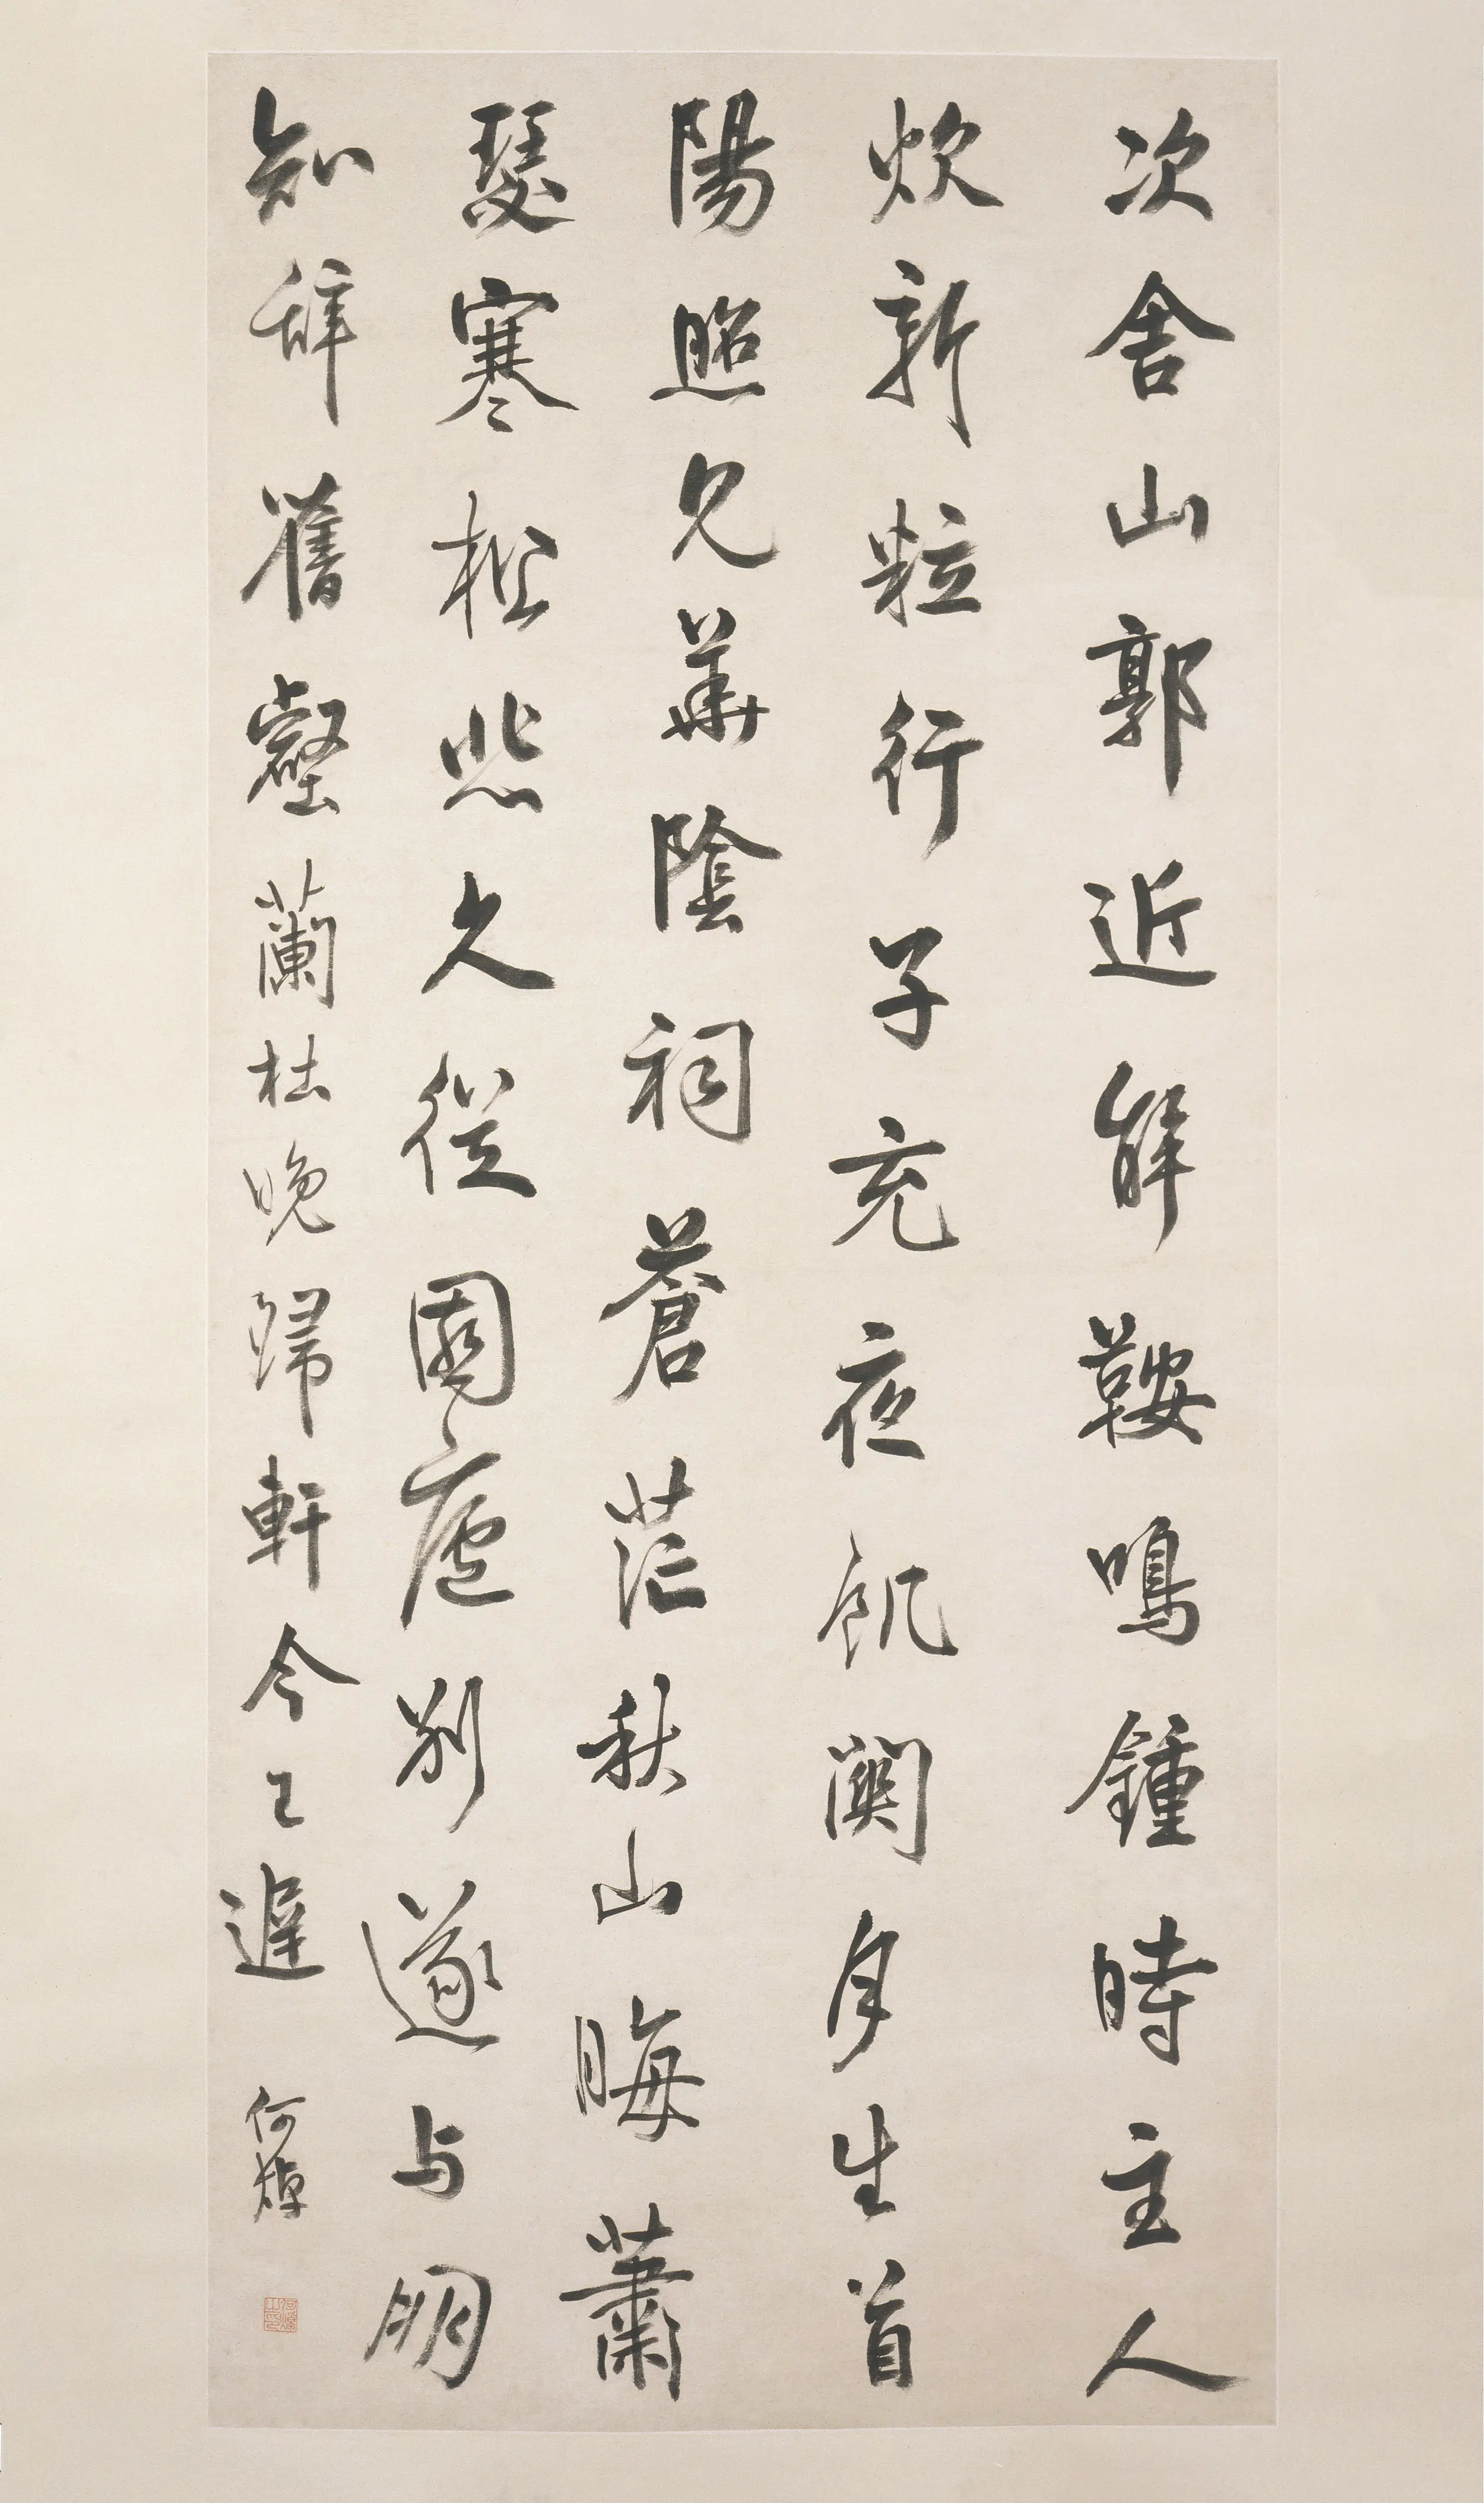 次舍山郭近解鞍鳴鍾時主人
炊新粒行子充夜飢關月生首
陽照見華陰祠蒼茫秋山晦蕭
瑟寒松悲久從園廬別遂与朋
知辞舊壑蘭杜晚歸軒今已遲 何焯